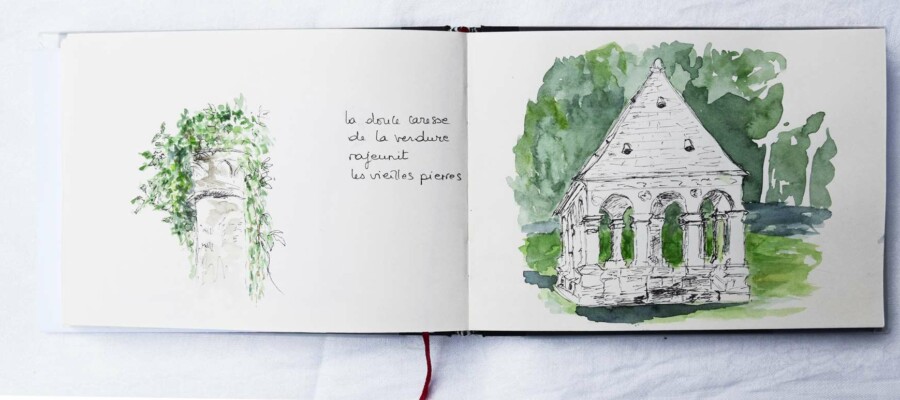 la douce caresse
de la verdure
rajeunit
les vieilles pierres